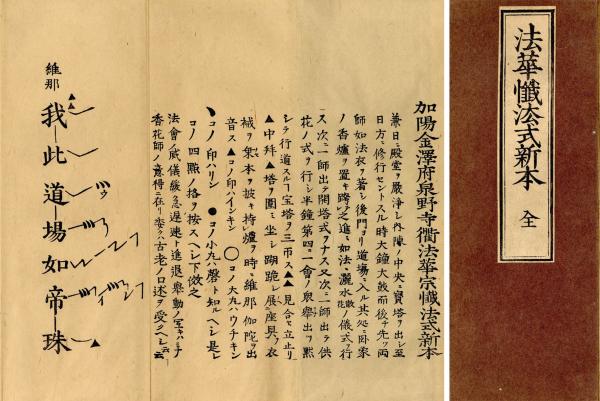 法華懺法式新本 全
加陽金澤府泉野寺衢法華宗懺法式新本
兼日ニ殿堂ヲ嚴浄シ内陣ノ中央ニ寶塔ヲ出シ至
日方ニ修行セントスル時大鐘大皷而後チ先ツ兩
師如法衣ヲ著シ後門ヨリ道場ニ入ル其処ニ臥家
ノ香爐ヲ置キ跨之進ミ如法ニ灑水散花ノ儀式ヲ行
ス次ニ二師出テ開塔式ヲナス又次ニ二師出テ供
花ノ式ヲ行シ半鐘第四ニ一會ノ衆擧出ヲ黙
シテ行道スルヿ宝塔ヲ三帀ス▲▲見合セ立止リ
▲中拜▲塔ヲ圍ミ坐シ跪シ展座具ヲ衣
裓ヲ衆本ヲ披キ持シ爐ヲ時ニ維那伽陀ヲ出
音ス▲コノ印ハインキン ◯コノ大丸ハウチキン
ヽコノ印ハリン ●コノ小丸ハ磬ト知ルヘシ是レ
コノ四點ノ搭ヲ按スヘシ下倣之
法會ノ威儀緩急遅速ト進退擧動ノ
香花師ノ意得ニ在リ委クハ古老ノ口述ヲ受クヘシ云云
維那
我此道場如帝珠